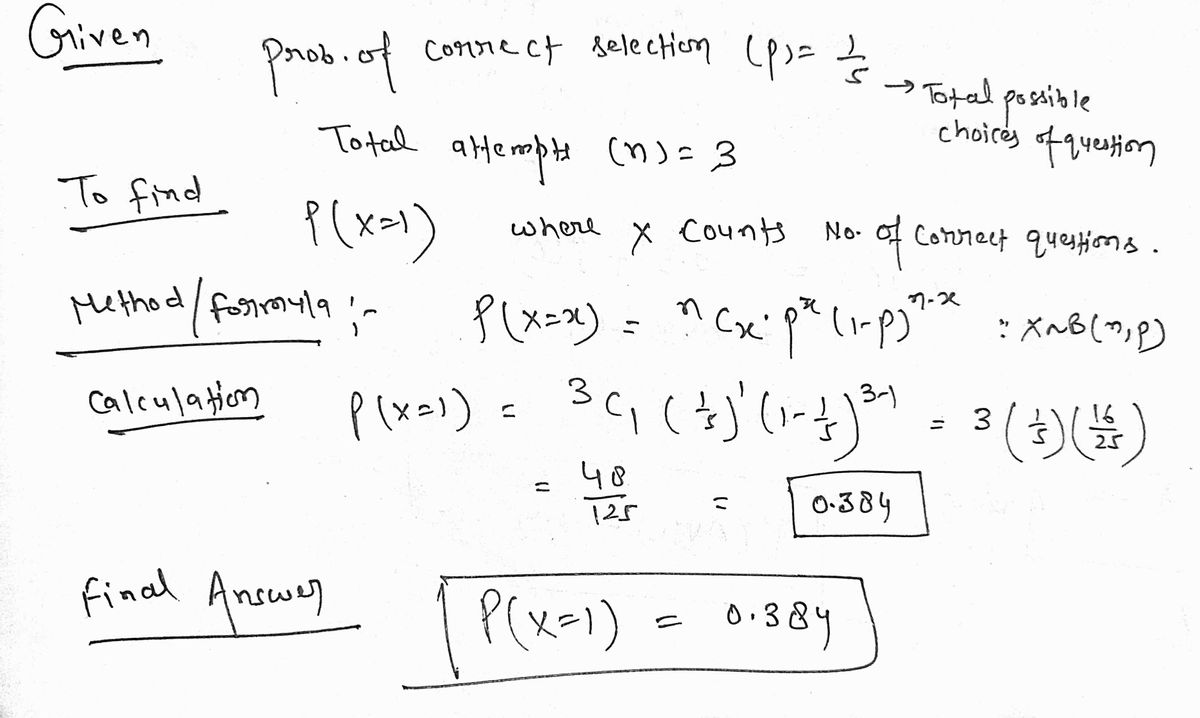 Given
Prob. of correct selection (p) = 1/5 → Total possible choices of question
Total attempts (n) = 3
To find
P(X=1) where X counts No. of correct questions.
Method/formula :- P(X=x) = ⁿCₓ · pˣ (1-p)ⁿ⁻ˣ : X~B(n,p)
Calculation P(X=1) = ³C₁ (1/5)¹ (1-1/5)³⁻¹ = 3 (1/5) (16/25)
= 48/125 = 0.384
Final Answer P(X=1) = 0.384